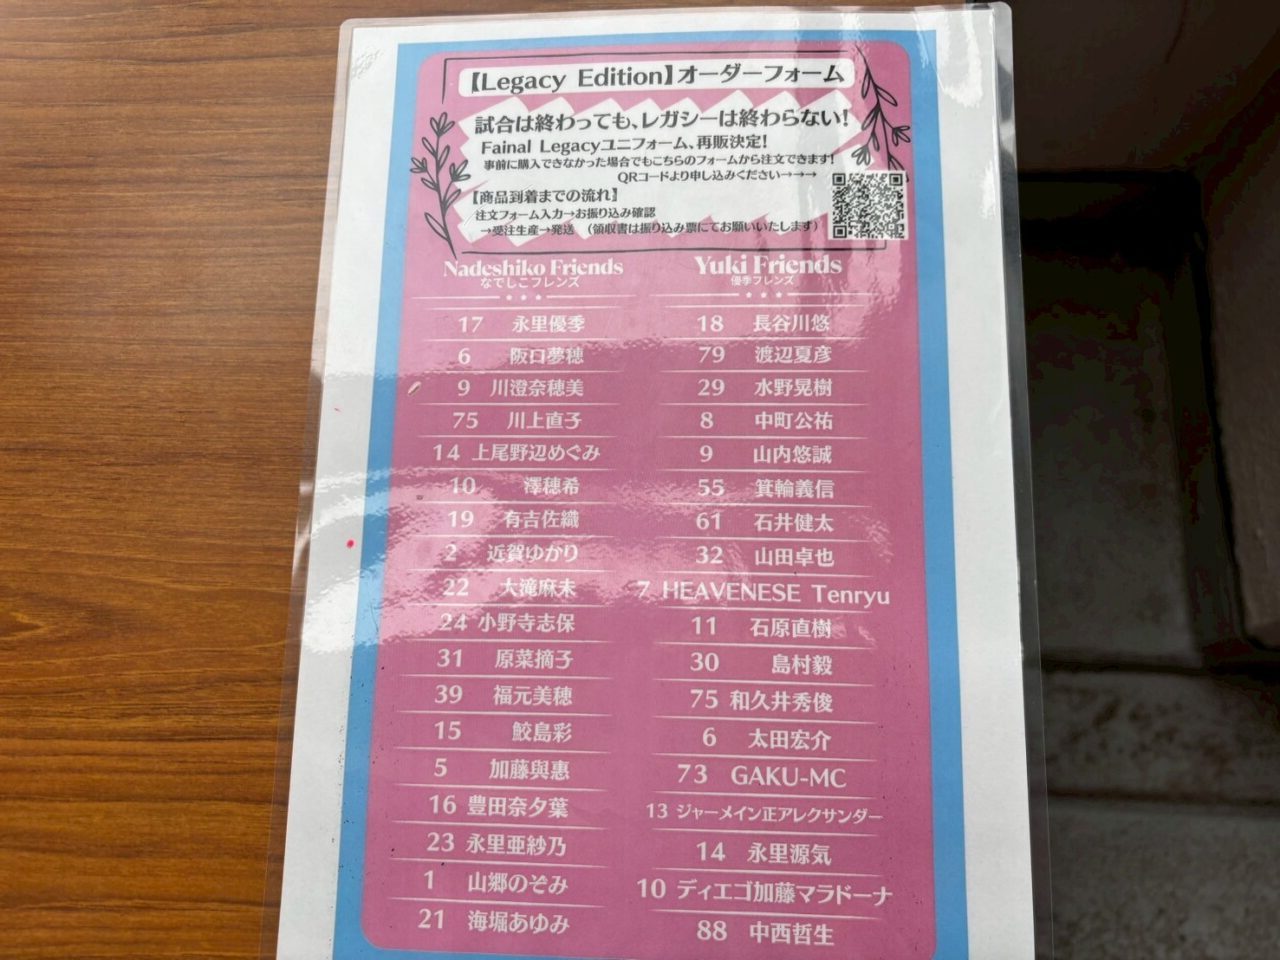 【Legacy Edition】オーダーフォーム
試合は終わっても、レガシーは終わらない!
Fainal Legacyユニフォーム、再販決定!
事前に購入できなかった場合でもこちらのフォームから注文できます!
QRコードより申し込みください→→→
【商品到着までの流れ】
注文フォーム入力→お振り込み確認
→受注生産→発送 (領収書は振り込み票にてお願いいたします)
Nadeshiko Friends
なでしこフレンズ
17 永里優季
6 阪口夢穂
9 川澄奈穂美
75 川上直子
14 上尾野辺めぐみ
10 澤穂希
19 有吉佐織
2 近賀ゆかり
22 大滝麻未
24 小野寺志保
31 原菜摘子
39 福元美穂
15 鮫島彩
5 加藤與惠
16 豊田奈夕葉
23 永里亜紗乃
1 山郷のぞみ
21 海堀あゆみ
Yuki Friends
優季フレンズ
18 長谷川悠
79 渡辺夏彦
29 水野晃樹
8 中町公祐
9 山内悠誠
55 箕輪義信
61 石井健太
32 山田卓也
7 HEAVENESE Tenryu
11 石原直樹
30 島村毅
75 和久井秀俊
6 太田宏介
73 GAKU-MC
13 ジャーメイン正アレクサンダー
14 永里源気
10 ディエゴ加藤マラドーナ
88 中西哲生